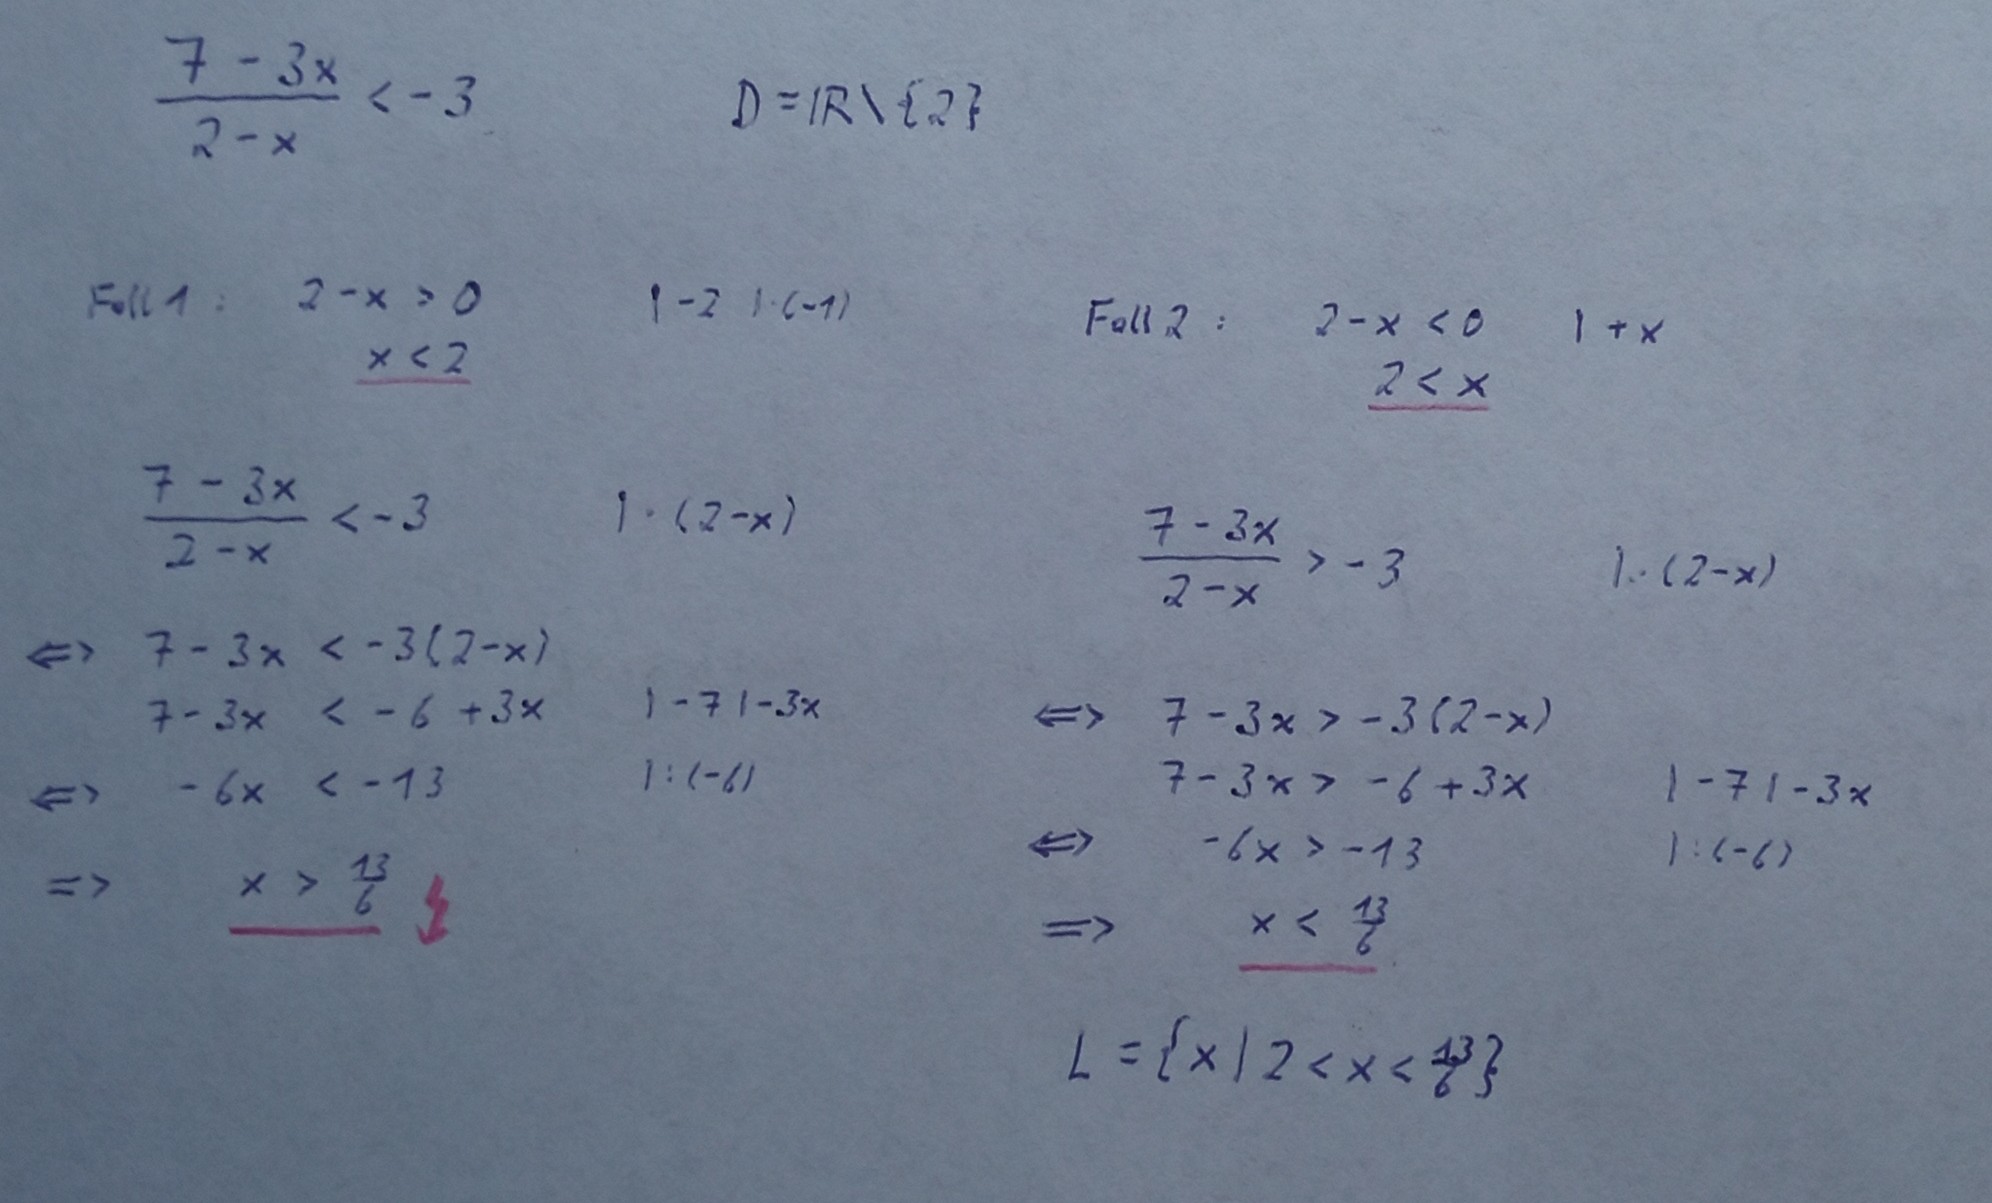 (7 - 3x)/(2 - x) < -3 D = ℝ \ {2}
Fall 1: 2 - x > 0 | -2 | ·(-1)
x < 2
(7 - 3x)/(2 - x) < -3 | · (2-x)
<=> 7 - 3x < -3(2-x)
7 - 3x < -6 + 3x | -7 | -3x
<=> -6x < -13 | :(-6)
=> x > 13/6 ↯
Fall 2: 2 - x < 0 | + x
2 < x
(7 - 3x)/(2 - x) > -3 | · (2-x)
<=> 7 - 3x > -3(2-x)
7 - 3x > -6 + 3x | -7 | -3x
<=> -6x > -13 | :(-6)
=> x < 13/6
L = {x | 2 < x < 13/6}